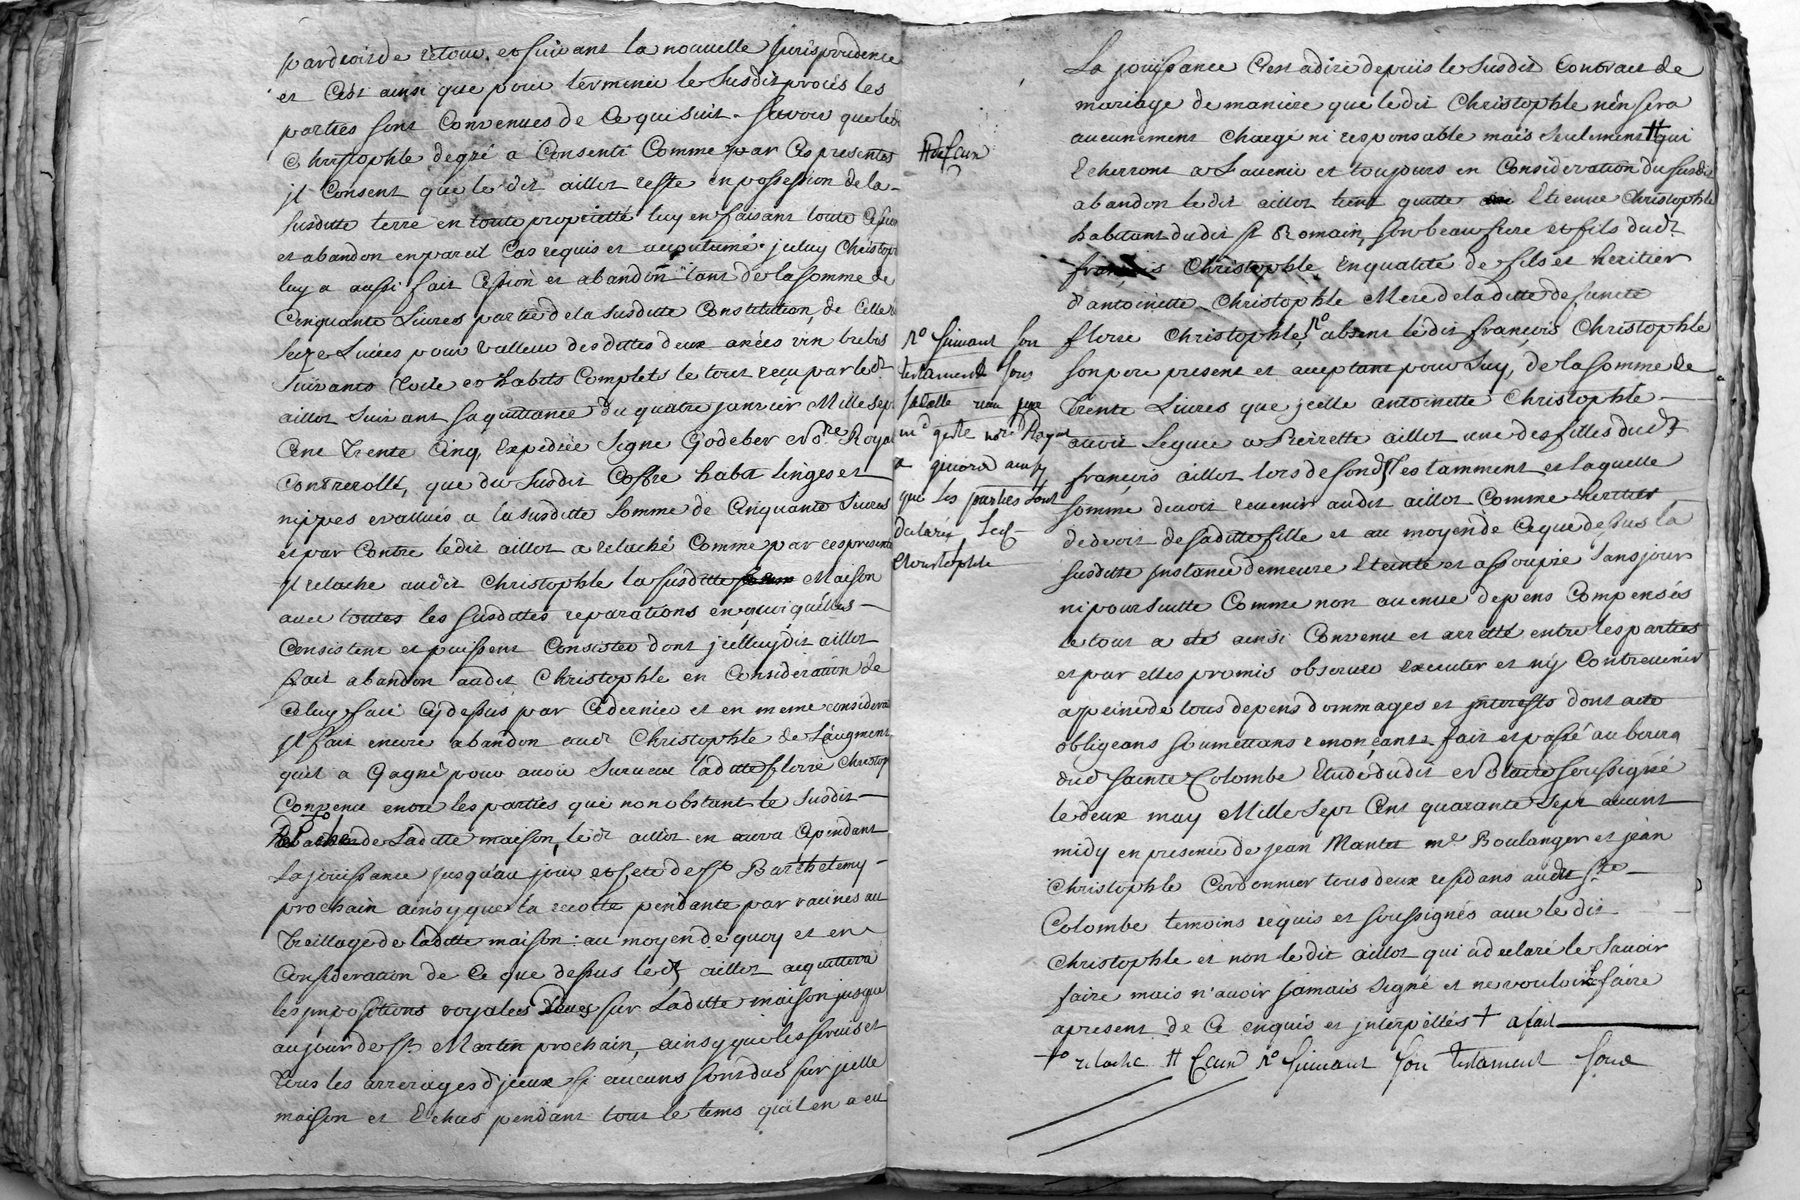 par droit de retour et suivant la nouvelle jurisprudence
et c'est ainsi que pour terminer le susdit procès les
parties sont convenues de ce qui suit. savoir que ledt
Christophle de gré a consenti comme par ces presentes
jl consent que le dit aillot reste en possession de la
susditte terre en toute proprietté luy en faisant toute
et abandon en pareil cas requis et accoutumé. jceluy Christop
luy a aussi fait cession et abandon tant de la somme de
Cinquante Livres partie de la susditte Constitution, de celle
seize Livres pour valleur des dittes deux anées vin brebis
suivants robe et habits complets le tout reçu par led.
aillot suivant sa quittance du quatre janvier Mille sep
Cent trente Cinq, Expediée signé Godeber No.re Royal
Controrollé, que du susdit Coffre habit linges et
nippes evallués a la susditte somme de Cinquante Livres
et par contre ledit aillot a relaché comme par ces presente
jl relache audit Christophle la susditte Maison
avec toutes les susdittes reparations en quoi qu'elles
Consistent et puissent Consister dont jcelluy dit aillot
fait abandon audit Christophle en Consideration de
celuy fait cy dessus par ce dernier et en meme considera
jl fait encore abandon audt Christophle de L'augment
qu'il a gagné pour avoir survecu laditte florie Christop
Convenu entre les parties que nonobstant le susdit
de Laditte maison, ledt aillot en aura cependant
La jouissance jusqu'au jour et fete de St Barthelemy
prochain ainsy que la recolte pendante par racines au
treillage de laditte maison: au moyen de quoy et en
Consideration de ce que dessus ledt aillot acquittera
les jmpositions royalles dues sur Laditte maison jusque
au jour de St Martin prochain, ainsy que les servis et
tous les arrerages d'jceux si aucuns sont dus sur jcelle
maison et Echus pendant tout le tems qu'il en a eu
La jouissance C'est a dire depuis le susdit Contract de
mariage de maniere que ledit Christophle n'en sera
aucunement chargé ni responsable mais seulement # qui
Echerront a L'avenir et toujours en Consideration du susdit
abandon ledit aillot tient quitte Etienne Christophle
habitant dudit St Romain, son beau frere et fils dudt
Christophle en qualité de fils et heritier
d'antoinette Christophle Mere de laditte defuncte
florie Christophle, No absent ledit françois Christophle
son pere present et acceptant pour Luy, de la somme de
trente Livres que jcelle antoinette Christophle
avoit Leguée a Pierrette aillot une des filles dudt
françois aillot lors de son dt testamment et laquelle
somme devoit revenir audit aillot comme heritier
de droit de saditte fille et au moyen de ce que dessus la
susditte jnstance demeure Eteinte et assoupie sans jour
ni poursuitte Comme non avenue depens Compensés
le tout a eté ainsi Convenu et arretté entre les parties
et par elles promis observer executer et n'y Contrevenir
a peine de tous depens dommages et jnterests dont acte
obligeans soumettans renonçants fait et passé au bourg
dud Sainte Colombe Etude dudit Notaire soussigné
le deux may Mille sept Cent quarante sept avant
midy en presence de jean Mantet me Boulanger et jean
Christophle Cordonnier tous deux residans audit Ste
Colombe temoins requis et soussignés avec le dit
Christophle et non ledit aillot qui a declaré le savoir
faire mais n'avoir jamais signé et ne vouloir le faire
a present de ce enquis et jnterpellés + a fait
+o relache # Ceux No suivant son testament sous
# Ceux
No suivant son
testament sous
sa datte reçu par
me No.re Royal
a givord ainsy
que les parties l'ont
declaré
Christophle